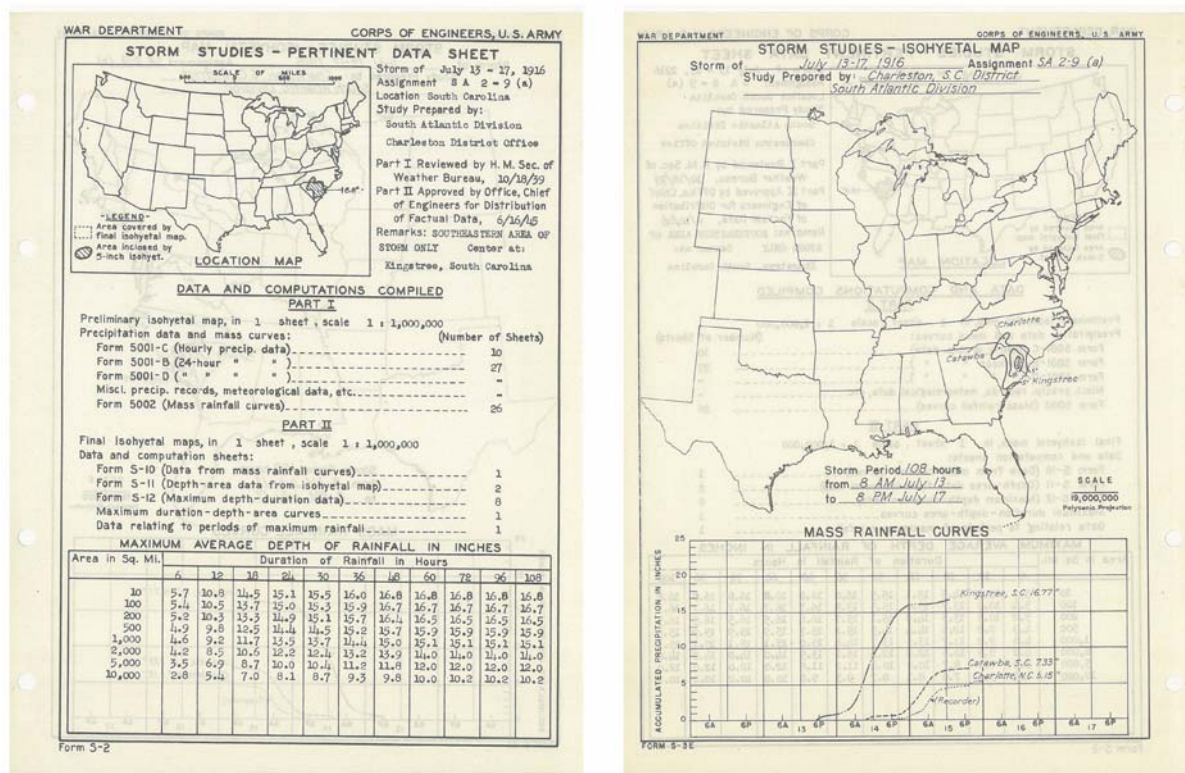 WAR DEPARTMENT CORPS OF ENGINEERS, U. S. ARMY
STORM STUDIES - PERTINENT DATA SHEET
SCALE OF MILES
Storm of July 13 - 17, 1916
Assignment S A 2 - 9 (a)
Location South Carolina
Study Prepared by:
South Atlantic Division
Charleston District Office
Part I Reviewed by H. M. Sec. of
Weather Bureau, 10/18/39
Part II Approved by Office, Chief
of Engineers for Distribution
of Factual Data, 6/16/45
Remarks: SOUTHEASTERN AREA OF
STORM ONLY Center at:
Kingstree, South Carolina
16.8"
- LEGEND -
Area covered by
final isohyetal map.
Area inclosed by
5-inch isohyet.
LOCATION MAP
DATA AND COMPUTATIONS COMPILED
PART I
Preliminary isohyetal map, in 1 sheet , scale 1 : 1,000,000
Precipitation data and mass curves: (Number of Sheets)
Form 5001-C (Hourly precip. data) 10
Form 5001-B (24-hour " " ) 27
Form 5001-D ( " " " " ) -
Miscl. precip. records, meteorological data, etc. -
Form 5002 (Mass rainfall curves) 26
PART II
Final isohyetal maps, in 1 sheet , scale 1 : 1,000,000
Data and computation sheets:
Form S-10 (Data from mass rainfall curves) 1
Form S-11 (Depth-area data from isohyetal map) 2
Form S-12 (Maximum depth-duration data) 8
Maximum duration-depth-area curves 1
Data relating to periods of maximum rainfall 1
MAXIMUM AVERAGE DEPTH OF RAINFALL IN INCHES
Area in Sq. Mi. Duration of Rainfall in Hours
6 12 18 24 30 36 48 60 72 96 108
10 5.7 10.8 14.5 15.1 15.5 16.0 16.8 16.8 16.8 16.8 16.8
100 5.4 10.5 13.7 15.0 15.3 15.9 16.7 16.7 16.7 16.7 16.7
200 5.2 10.3 13.3 14.9 15.1 15.7 16.4 16.5 16.5 16.5 16.5
500 4.9 9.8 12.5 14.4 14.5 15.2 15.7 15.9 15.9 15.9 15.9
1,000 4.6 9.2 11.7 13.5 13.7 14.4 15.0 15.1 15.1 15.1 15.1
2,000 4.2 8.5 10.6 12.2 12.4 13.2 13.9 14.0 14.0 14.0 14.0
5,000 3.5 6.9 8.7 10.0 10.4 11.2 11.8 12.0 12.0 12.0 12.0
10,000 2.8 5.4 7.0 8.1 8.7 9.3 9.8 10.0 10.2 10.2 10.2
Form S-2
WAR DEPARTMENT CORPS OF ENGINEERS, U. S. ARMY
STORM STUDIES - ISOHYETAL MAP
Storm of July 13-17, 1916 Assignment SA 2-9 (a)
Study Prepared by: Charleston, S.C. District
South Atlantic Division
Charlotte
Catawba
Kingstree
Storm Period 108 hours
from 8 AM July 13
to 8 PM July 17
SCALE
1
19,000,000
Polyconic Projection
MASS RAINFALL CURVES
ACCUMULATED PRECIPITATION IN INCHES
25
20
15
10
5
0
Kingstree, S.C. 16.77"
Catawba, S.C. 7.33"
Charlotte, N.C. 5.15"
(Recorder)
6A 6P 6A 6P 6A 6P 6A 6P 6A 6P
13 14 15 16 17
FORM S-3E